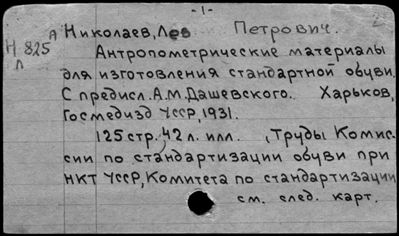 -1-
2
А Николаев, Лев Петрович.
Н 825
Л
Антропометрические материалы
для изготовления стандартной обуви.
С предисл. А.М. Дашевского. Харьков,
Госмедизд УССР, 1931.
125 стр., 42 л. илл. , Труды Комис-
сии по стандартизации обуви при
НКТ УССР, Комитета по стандартизации
см. след. карт.